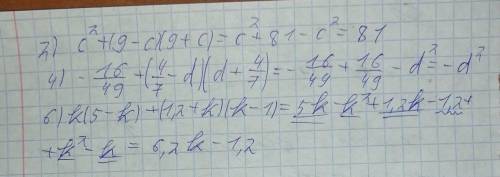 2) c² + (9 - c)(9 + c) = c² + 81 - c² = 81
4) - 16/49 + (4/7 - d)(d + 4/7) = - 16/49 + 16/49 - d² = - d²
6) k(5 - k) + (1,2 + k)(k - 1) = 5k - k² + 1,2k - 1,2 +
+ k² - k = 6,2k - 1,2